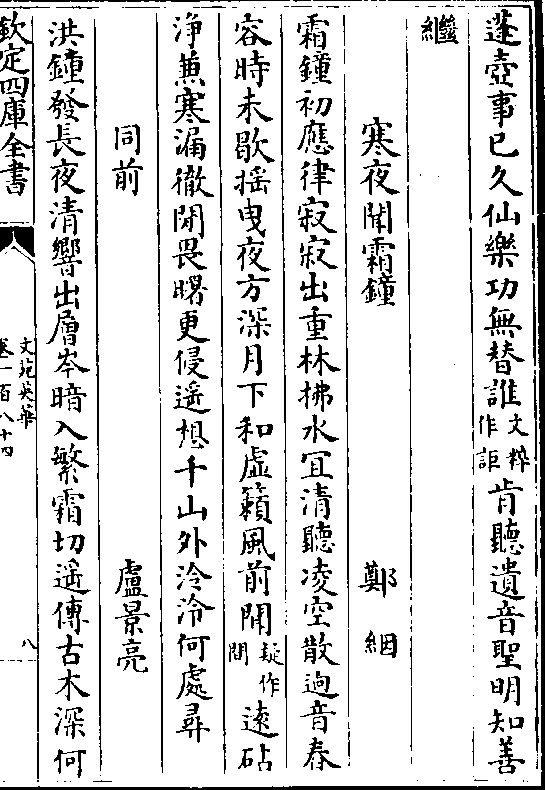 蓬壺事已久仙樂功無替誰文粹作詎肯聽遺音聖明知善
繼
寒夜聞霜鐘　鄭絪
霜鐘初應律寂寂出重林拂水宜清聽凌空散迥音舂
容時未歇揺曳夜方深月下和虛籟風前開疑作間遠砧
淨兼寒漏徹閒畏曙更侵遥想千山外泠泠何處尋
同前　盧景亮
洪鍾發長夜清響出層岑暗入繁霜切遥傳古木深何
欽定四庫全書
文苑英華
卷一百八十四
八